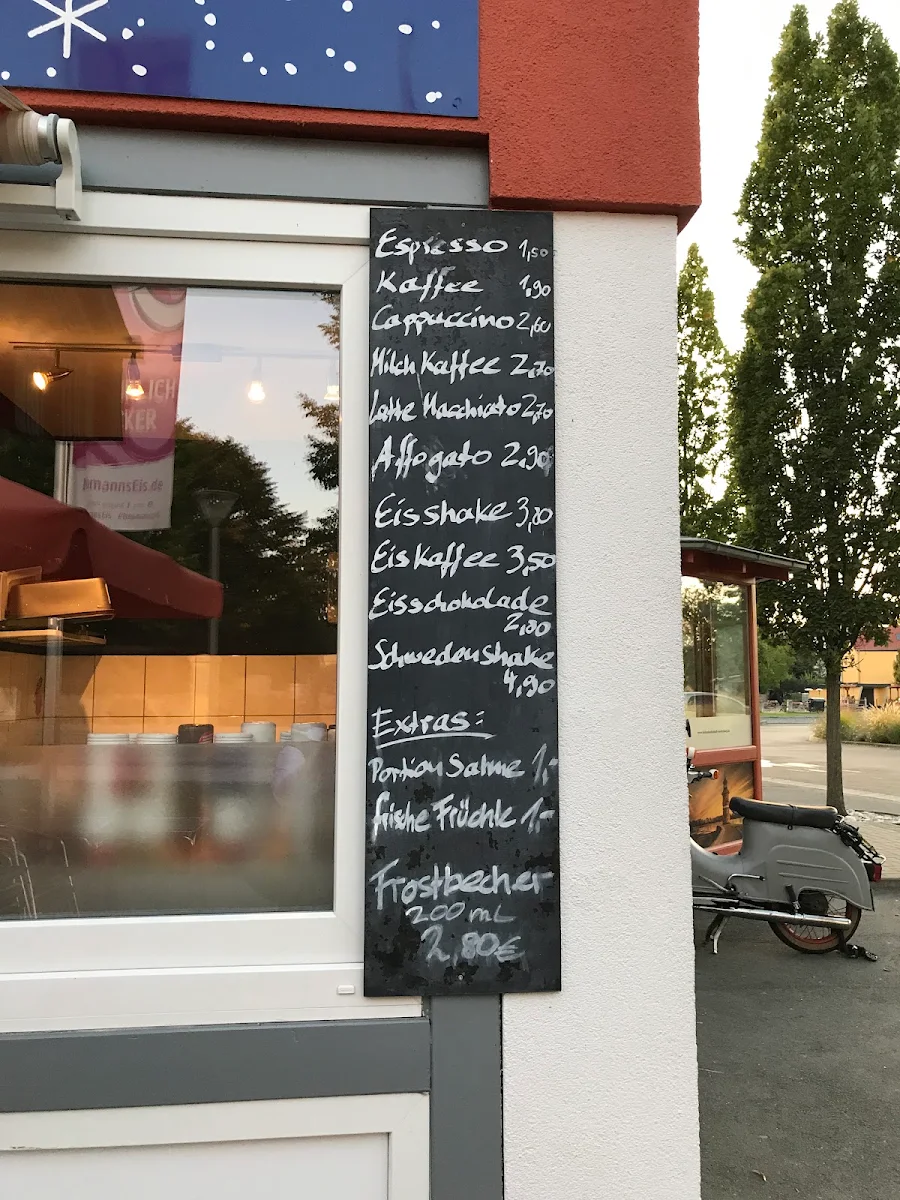 Espresso 1,50
Kaffee 1,90
Cappuccino 2,60
Milch Kaffee 2,70
Latte Macchiato 2,70
Affogato 2,90
Eisshake 3,20
Eiskaffee 3,50
Eisschokolade
2,80
Schwedenshake
4,90
Extras:
Portion Sahne 1,-
frische Früchte 1,-
Frostbecher
200 mL
2,80€
LICH
KER
mannsEis.de